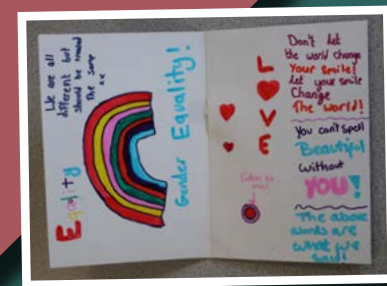 Equality
We are all
different but
should be treated
the same
xx
Gender Equality!
LOVE
Don't let
the world change
Your smile!
let your smile
Change
The World!
You can't spell
Beautiful
without
YOU!
The above
words are
what we
say!